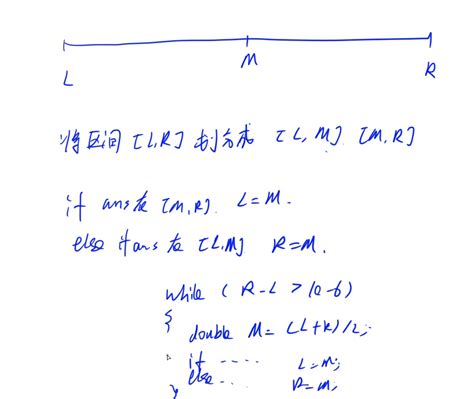 L M R
将区间 [L,R] 划分成 [L, M] [M,R]
if ans在 [M,R]. L=M.
else if ans 在 [L,M] R=M.
while ( R-L > 1e-6)
{
double M= (L+R)/2;
if ---- L=M;
else... R=M,
}